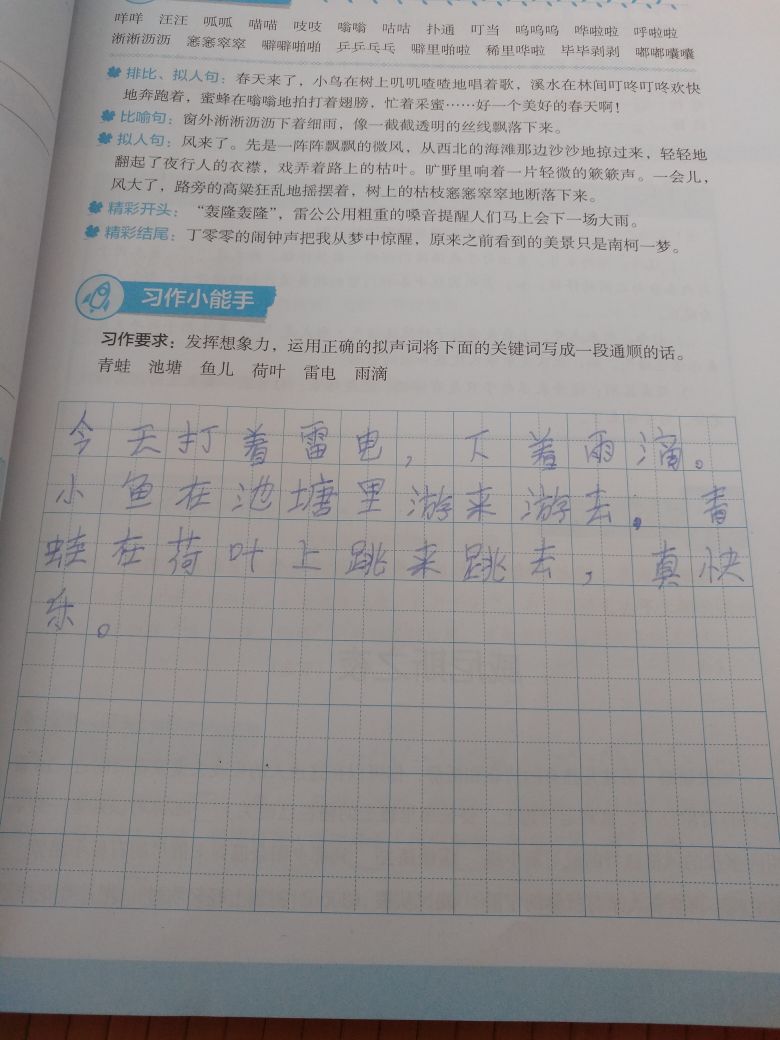 咩咩 汪汪 呱呱 喵喵 吱吱 嗡嗡 咕咕 扑通 叮当 呜呜呜 哗啦啦 呼啦啦
淅淅沥沥 窸窸窣窣 噼噼啪啪 乒乒乓乓 噼里啪啦 稀里哗啦 毕毕剥剥 嘟嘟囔囔
排比、拟人句：春天来了，小鸟在树上叽叽喳喳地唱着歌，溪水在林间叮咚叮咚欢快
地奔跑着，蜜蜂在嗡嗡地拍打着翅膀，忙着采蜜……好一个美好的春天啊！
比喻句：窗外淅淅沥沥下着细雨，像一截截透明的丝线飘落下来。
拟人句：风来了。先是一阵阵飘飘的微风，从西北的海滩那边沙沙地掠过来，轻轻地
翻起了夜行人的衣襟，戏弄着路上的枯叶。旷野里响着一片轻微的簌簌声。一会儿，
风大了，路旁的高粱狂乱地摇摆着，树上的枯枝窸窸窣窣地断落下来。
精彩开头：“轰隆轰隆”，雷公公用粗重的嗓音提醒人们马上会下一场大雨。
精彩结尾：丁零零的闹钟声把我从梦中惊醒，原来之前看到的美景只是南柯一梦。
习作小能手
习作要求：发挥想象力，运用正确的拟声词将下面的关键词写成一段通顺的话。
青蛙 池塘 鱼儿 荷叶 雷电 雨滴
今天打着雷电，下着雨滴。
小鱼在池塘里游来游去。青
蛙在荷叶上跳来跳去，真快
乐。